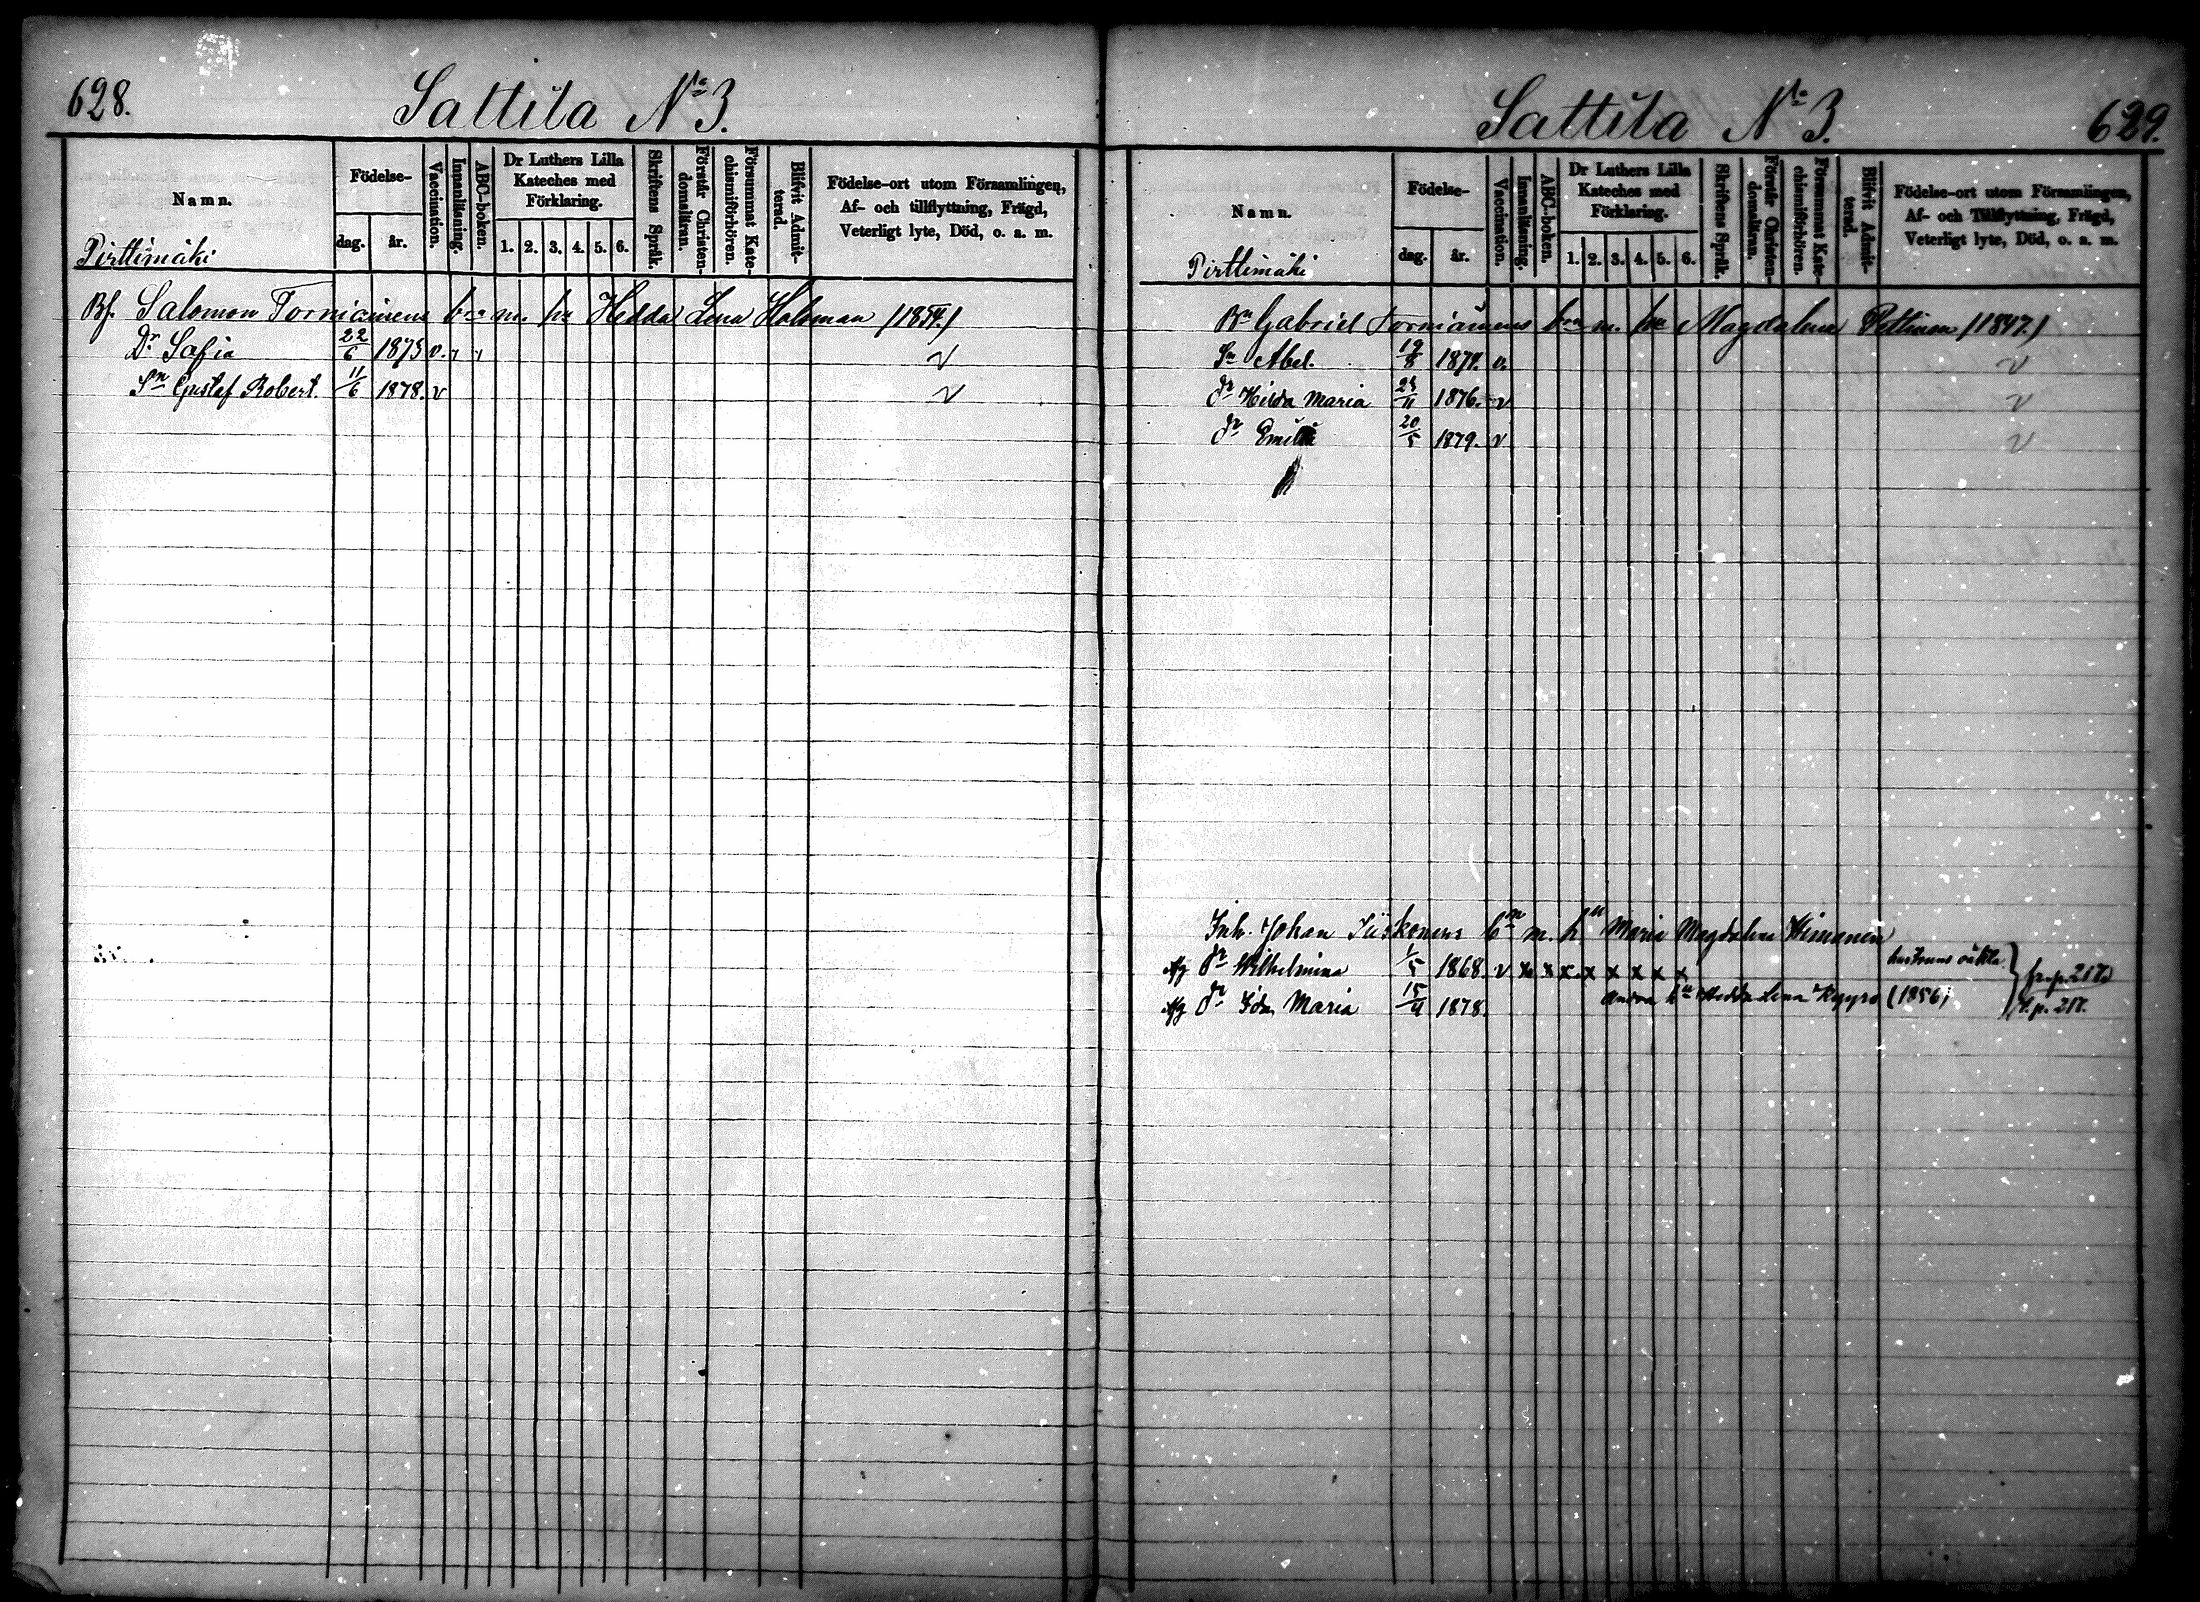 628.
Sattila No 3.
Namn.
Födelse-
dag.
år.
Vaccination.
Innanläsning.
ABC-boken.
Dr Luthers Lilla
Kateches med
Förklaring.
1. 2. 3. 4. 5. 6.
Skriftens Språk.
Förstår Christen-
domsläran.
Försummat Kate-
chismiförhören.
Blifvit Admit-
terad.
Födelse-ort utom Församlingen,
Af- och tillflyttning, Frägd,
Veterligt lyte, Död, o. a. m.
Pirttimäki
Salomon Torniainens brn m. hu Hedda Lena Halonen (1854.)
Dr Sofia 22/6 1875 v.
Sn Gustaf Robert. 11/6 1878. v v
Sattila No 3.
629.
Namn.
Födelse-
dag.
år.
Vaccination.
Innanläsning.
ABC-boken.
Dr Luthers Lilla
Kateches med
Förklaring.
1. 2. 3. 4. 5. 6.
Skriftens Språk.
Förstår Christen-
domsläran.
Försummat Kate-
chismiförhören.
Blifvit Admit-
terad.
Födelse-ort utom Församlingen,
Af- och Tillflyttning, Frägd,
Veterligt lyte, Död, o. a. m.
Pirttimäki
Gabriel Torniainens brn m. hu Magdalena (1847.)
Sn Abel. v. v
dr Hilda Maria 1876. v v
dr Emilia 20/5 1879. v v
Inh. Johan bn m. hu Maria Magdalena Himanen
dr Wilhelmina 1/5 1868. v x x x x x x x x
hustruns oäkta
fr. p. 217
dr Ida Maria 1878.
Andra hu Hedda Lena (1856)
t. p. 217.